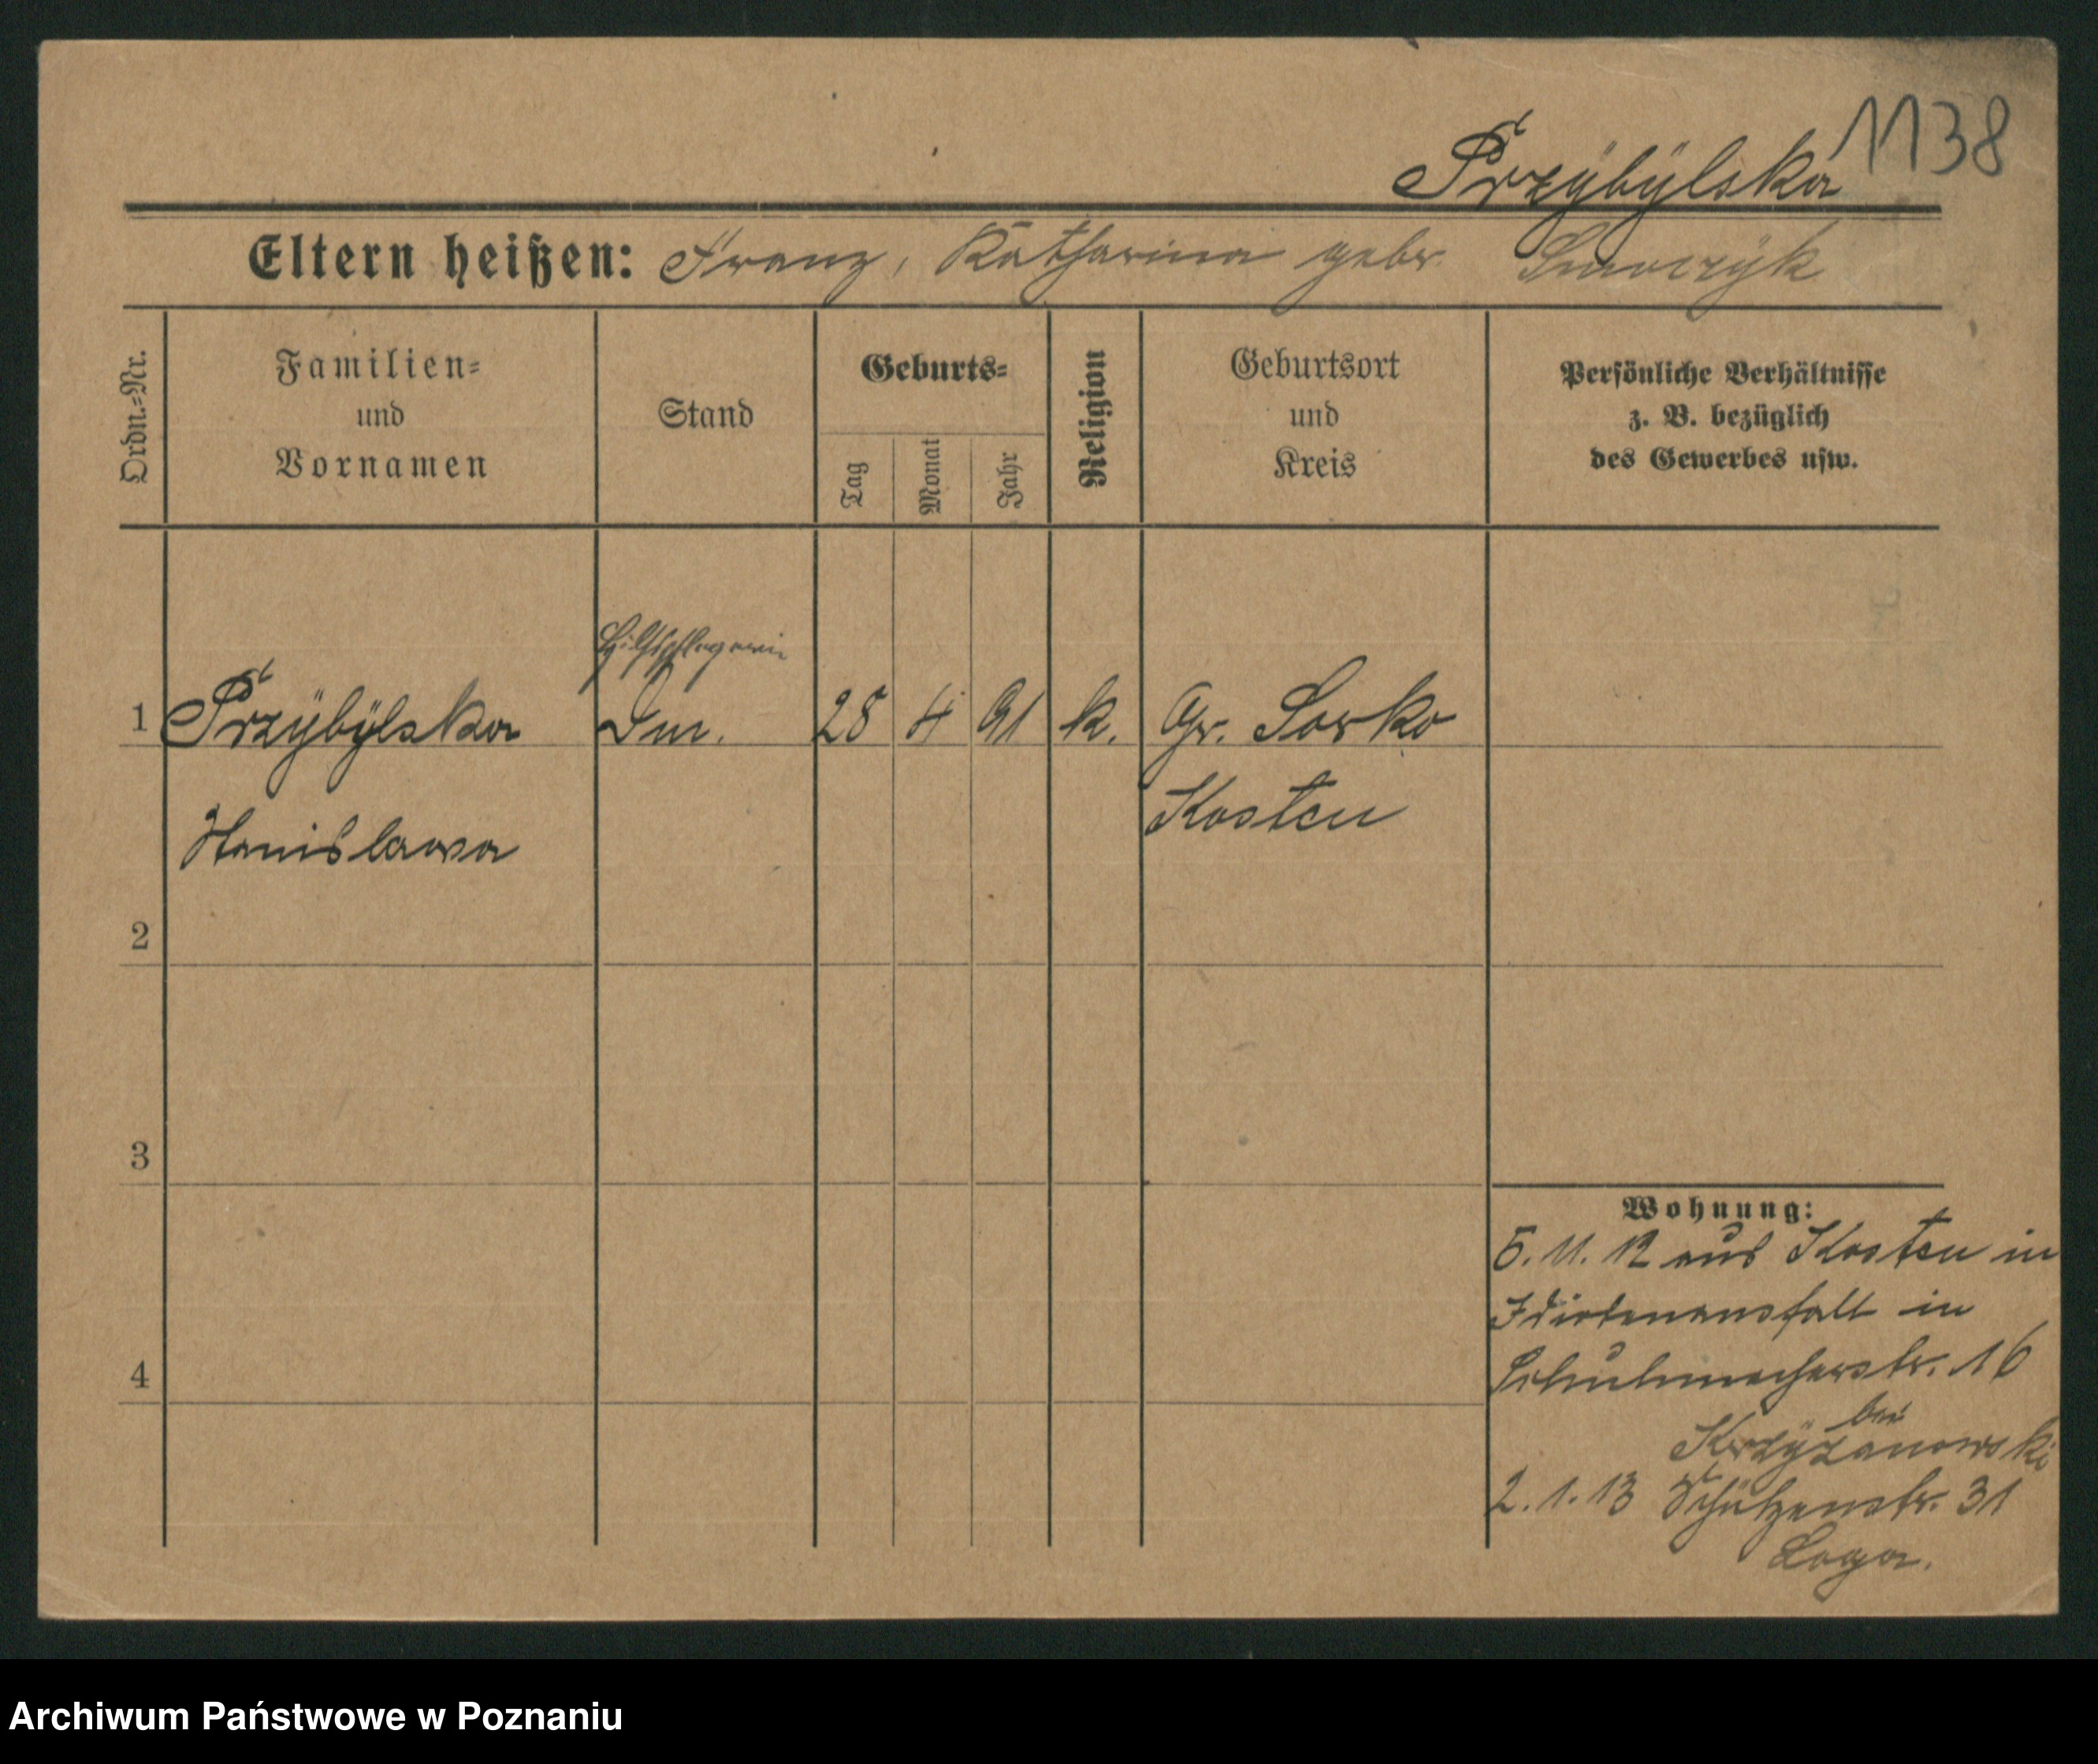 1138
Przÿbÿlska
Eltern heißen: Franz, Katharina gebr.
Ordn.-Nr.
Familien-
und
Vornamen
Stand
Geburts-
Tag
Monat
Jahr
Religion
Geburtsort
und
Kreis
Persönliche Verhältnisse
z. B. bezüglich
des Gewerbes usw.
Hilfspflegerin
1 Przÿbÿlska 28 4 91 k. Gr. Sorko
Kosten
Stanislawa
2
3
4
Wohnung:
5. 11. 12 aus Kosten in
Idiotenanstalt in
Schuhmacherstr. 16
bei
Krzÿzanowski
2. 1. 13 Schützenstr. 31
Archiwum Państwowe w Poznaniu